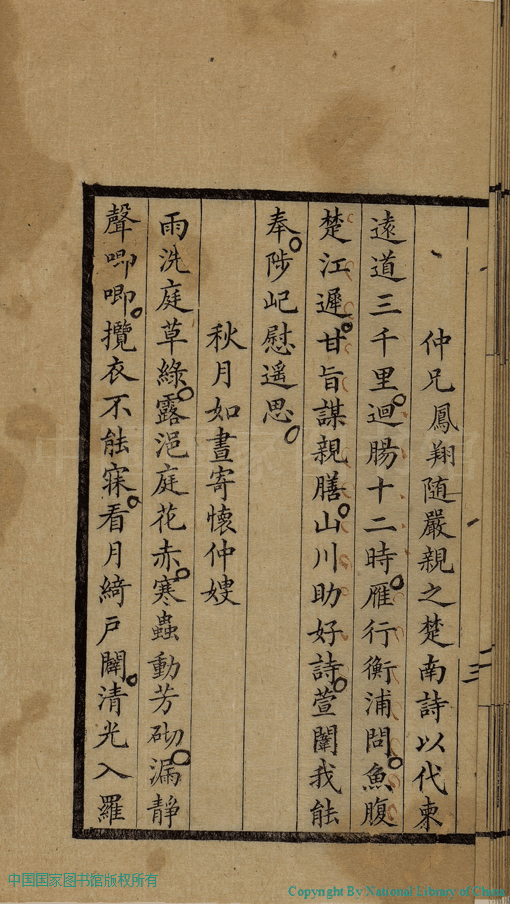 仲兄鳳翔随嚴親之楚南詩以代柬
遠道三千里。迴腸十二時。雁行衡浦問。魚腹
楚江遲。甘旨謀親膳。山川助好詩。萱闈我能
奉。陟屺慰遥思。
秋月如晝寄懷仲嫂
雨洗庭草綠。露浥庭花赤。寒蟲動芳砌。漏静
聲唧唧。攬衣不能寐。看月綺戶闢。清光入羅
二三
中国国家图书馆版权所有
Copyright By National Library of China